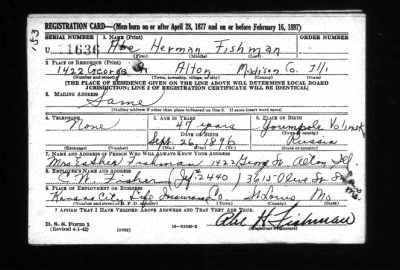 REGISTRATION CARD—(Men born on or after April 28, 1877 and on or before February 16, 1897)
SERIAL NUMBER 1. NAME (Print) ORDER NUMBER
U 1636 Abe Herman Fishman
(First) (Middle) (Last)
2. PLACE OF RESIDENCE (Print)
1422 George St Alton Madison Co. Ills
(Number and street) (Town, township, village, or city) (County) (State)
[THE PLACE OF RESIDENCE GIVEN ON THE LINE ABOVE WILL DETERMINE LOCAL BOARD
JURISDICTION; LINE 2 OF REGISTRATION CERTIFICATE WILL BE IDENTICAL]
3. MAILING ADDRESS
Same
(Mailing address if other than place indicated on line 2. If same insert word same)
4. TELEPHONE 5. AGE IN YEARS 6. PLACE OF BIRTH
None 47 years
DATE OF BIRTH (Town or county)
Sept 26 1896 Russia
(Mo.) (Day) (Yr.) (State or country)
7. NAME AND ADDRESS OF PERSON WHO WILL ALWAYS KNOW YOUR ADDRESS
Mrs. Esther Fishman 1422 George St Alton Ill.
8. EMPLOYER'S NAME AND ADDRESS
C. W. Fisher (Jef 2440) 3615 Olive St
9. PLACE OF EMPLOYMENT OR BUSINESS
Kansas City Life Insurance Co St Louis Mo
(Number and street or R. F. D. number) (Town) (County) (State)
I AFFIRM THAT I HAVE VERIFIED ABOVE ANSWERS AND THAT THEY ARE TRUE.
D. S. S. Form 1
(Revised 4-1-42) (over) 16—21630-2 Abe H Fishman
(Registrant's signature)